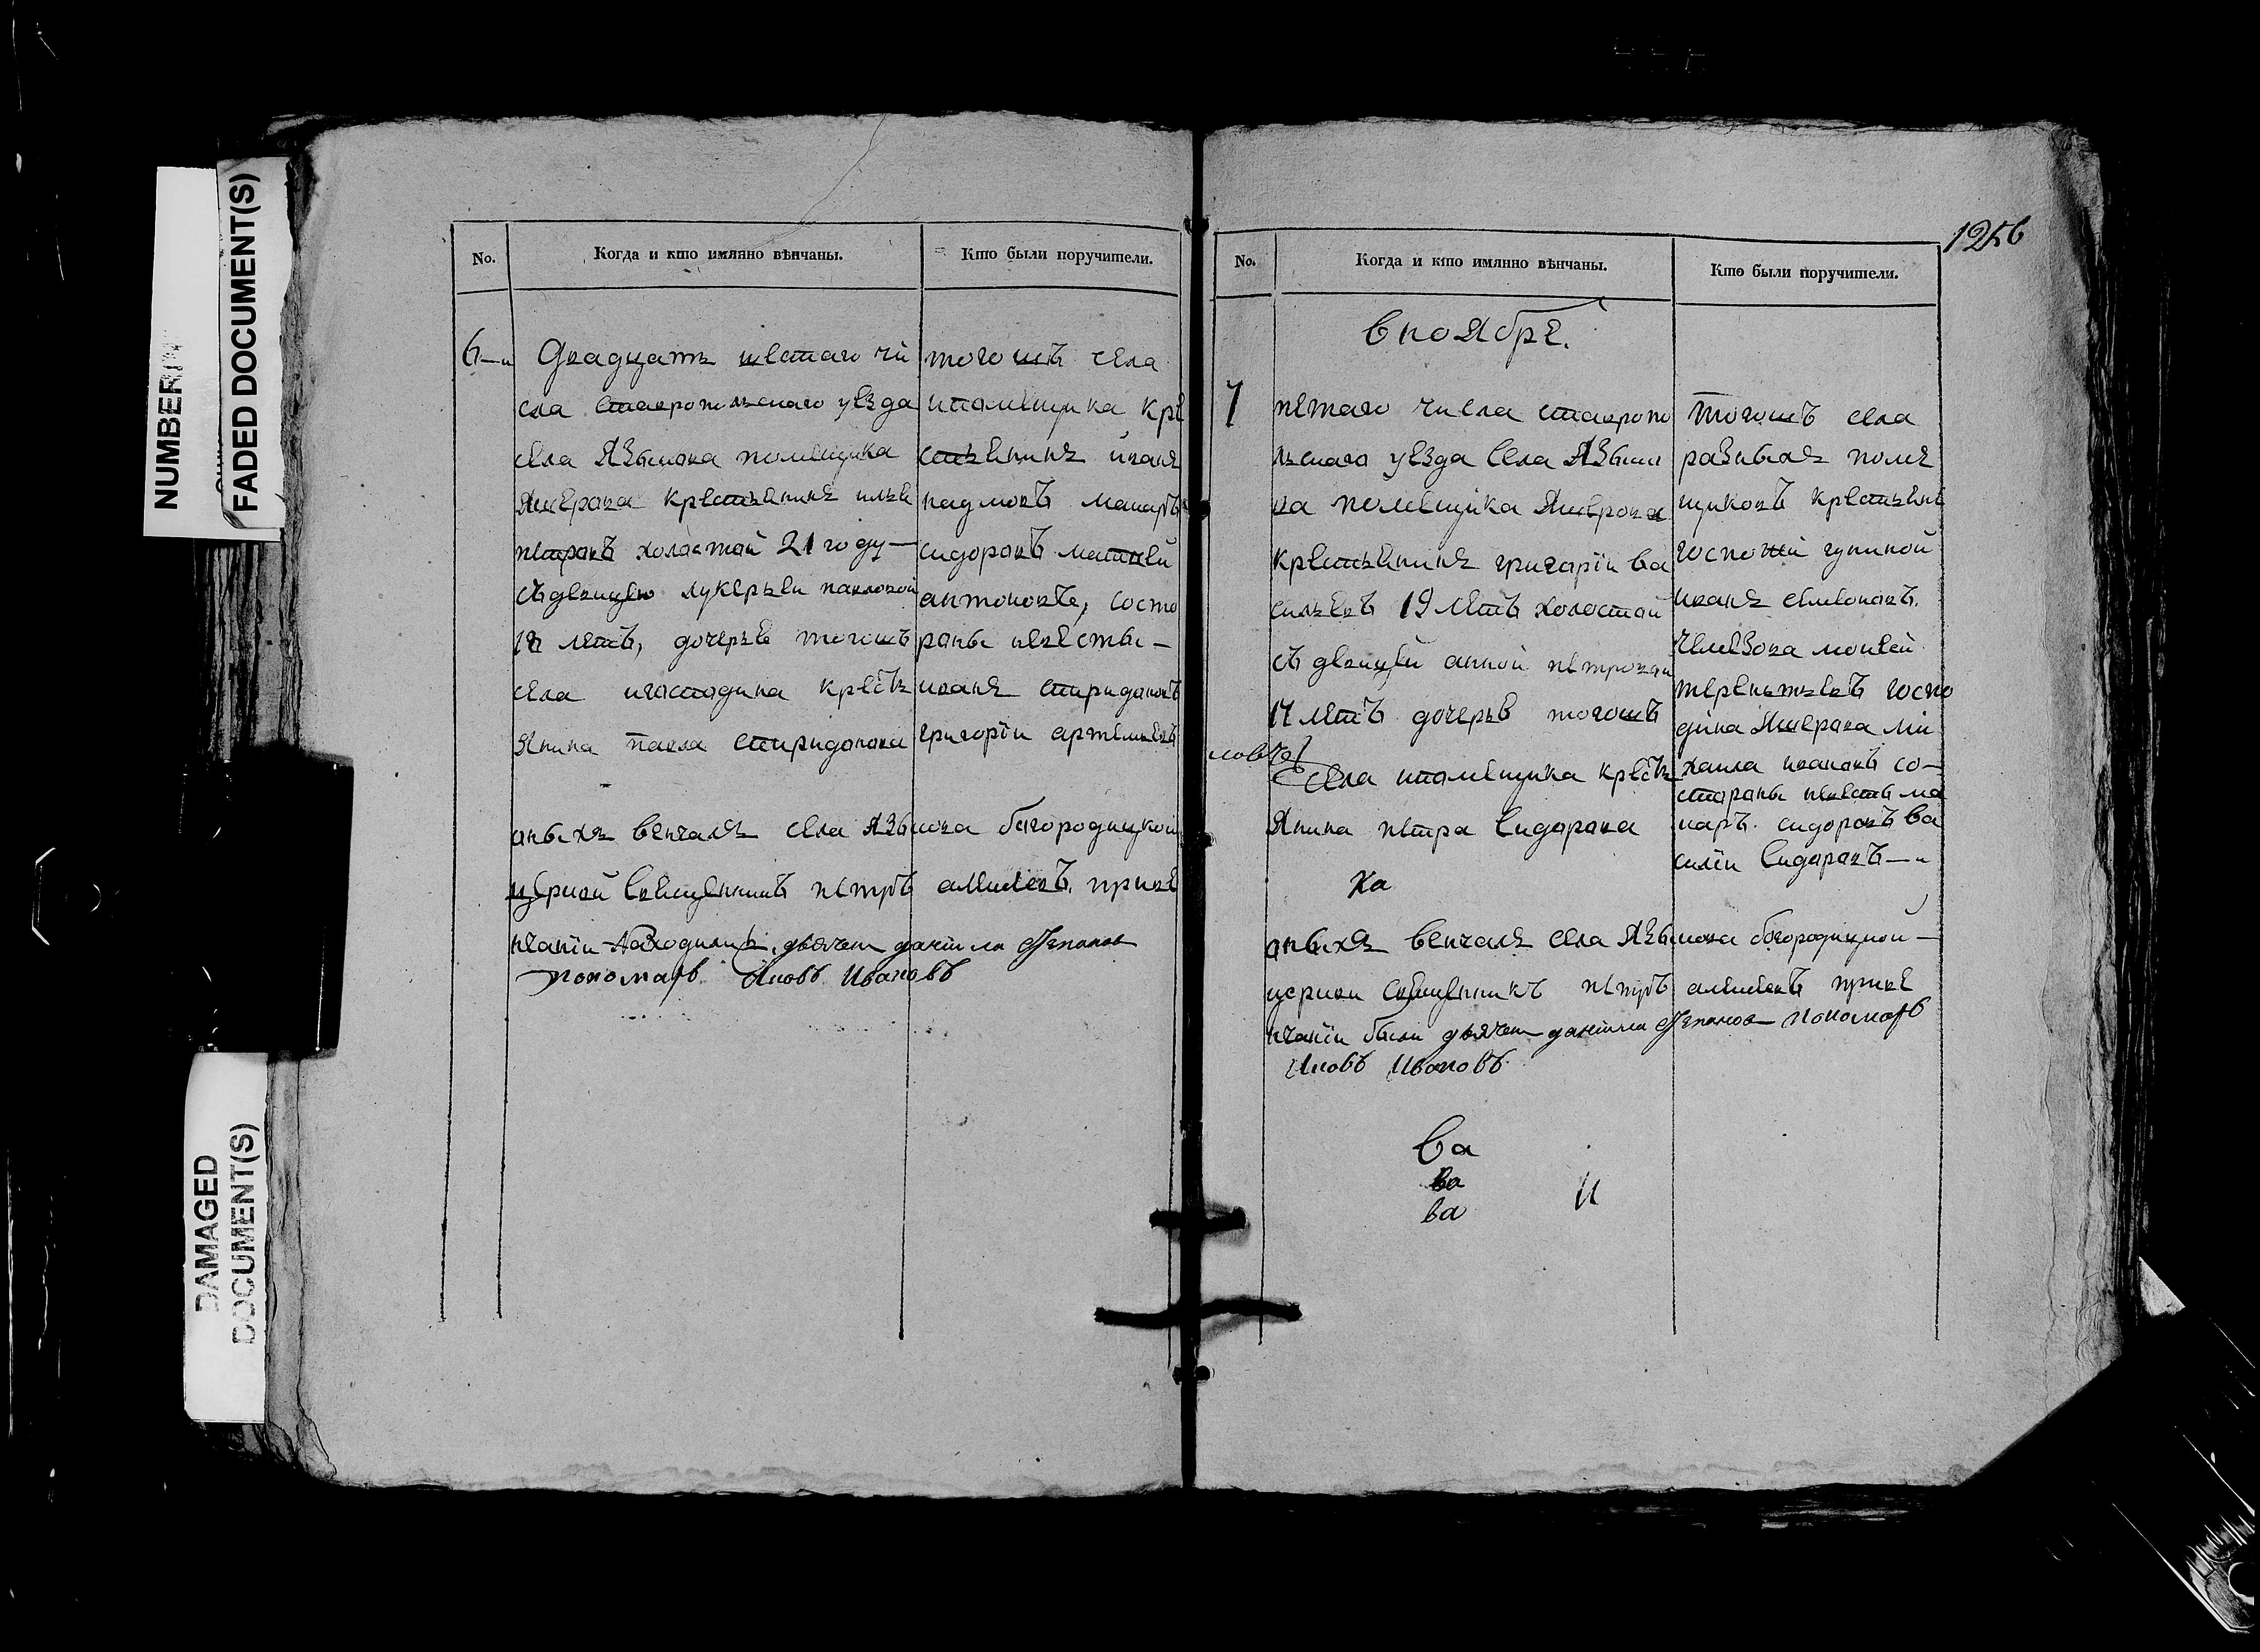 NUMBERIN
FADED DOCUMENT(S)
DAMAGED
DOCUMENT(S)
No.
Когда и кто имянно вѣнчаны.
Кто были поручители.
6
Двадцать шестаго чи
сла ставропольскаго уезда
села Языкова помещика
крестьянинъ илья
петровъ холастой 21 году
съ девицею лукерьеи павловой
18 летъ, дочерью тогошъ
села игаспадина кресть
янина павла спиридонова
тогошъ села
ипамещика кре
стьянинъ иванъ
макаръ
сидоровъ матвей
антоновъ, состо
раны невесты
иванъ спиридоновъ
григорiи артемьевъ
оныхъ венчалъ села Языкова богородицкой
церкви священникъ петръ алексеевъ, приве
нчанiи находились дьячек данiила Степанов
пономарь Яковъ Ивановъ
No.
Когда и кто имянно вѣнчаны.
Кто были поручители.
125б
в ноябре.
7
петаго числа ставропо
льскаго уезда села Языко
ва помещика
крестьянинъ григорiи ва
сильевъ 19 летъ холостой
съ девицей анной петровой
17 летъ дочерью тогошъ
села ипамещика кресть
янина петра сидорова
тогошъ села
разныхъ поме
щиковъ крестьяне
госпожи
иванъ семеновъ.
моисей
терентьевъ госпо
дина ми
хаила ивановъ со
стораны невесты ма
каръ сидоровъ ва
силiи сидоровъ
ка
оныхъ венчалъ села Языкова богородицкой
церкви священникъ петръ алексеевъ приве
нчанiи были дьячек данiила Степанов пономарь
Яковъ Ивановъ
ва
ва
ва
и